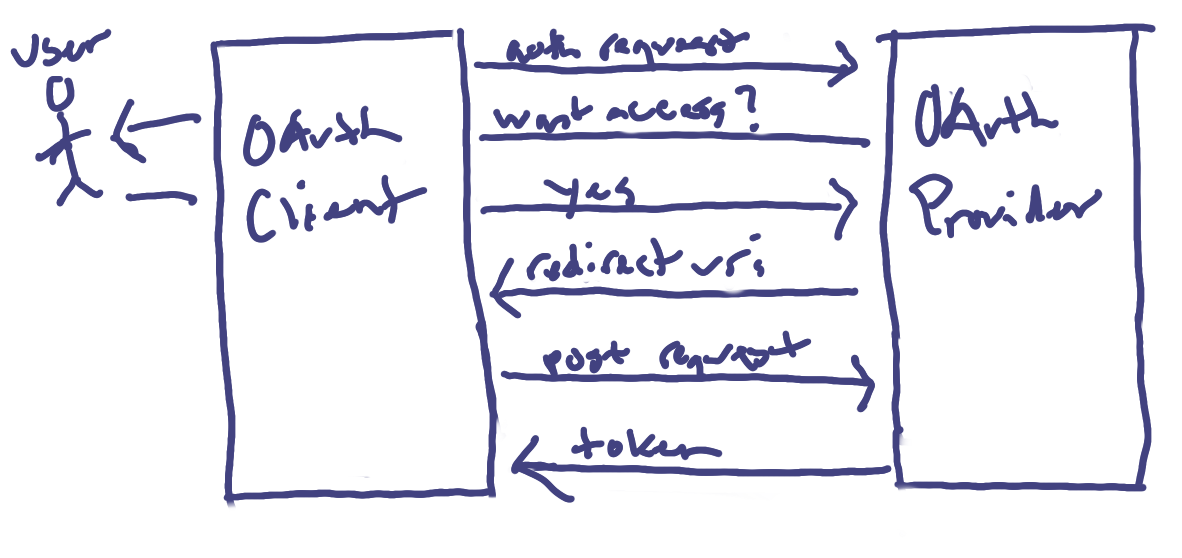 User
OAuth
Client
auth request
want access?
yes
redirect uri
post request
token
OAuth
Provider